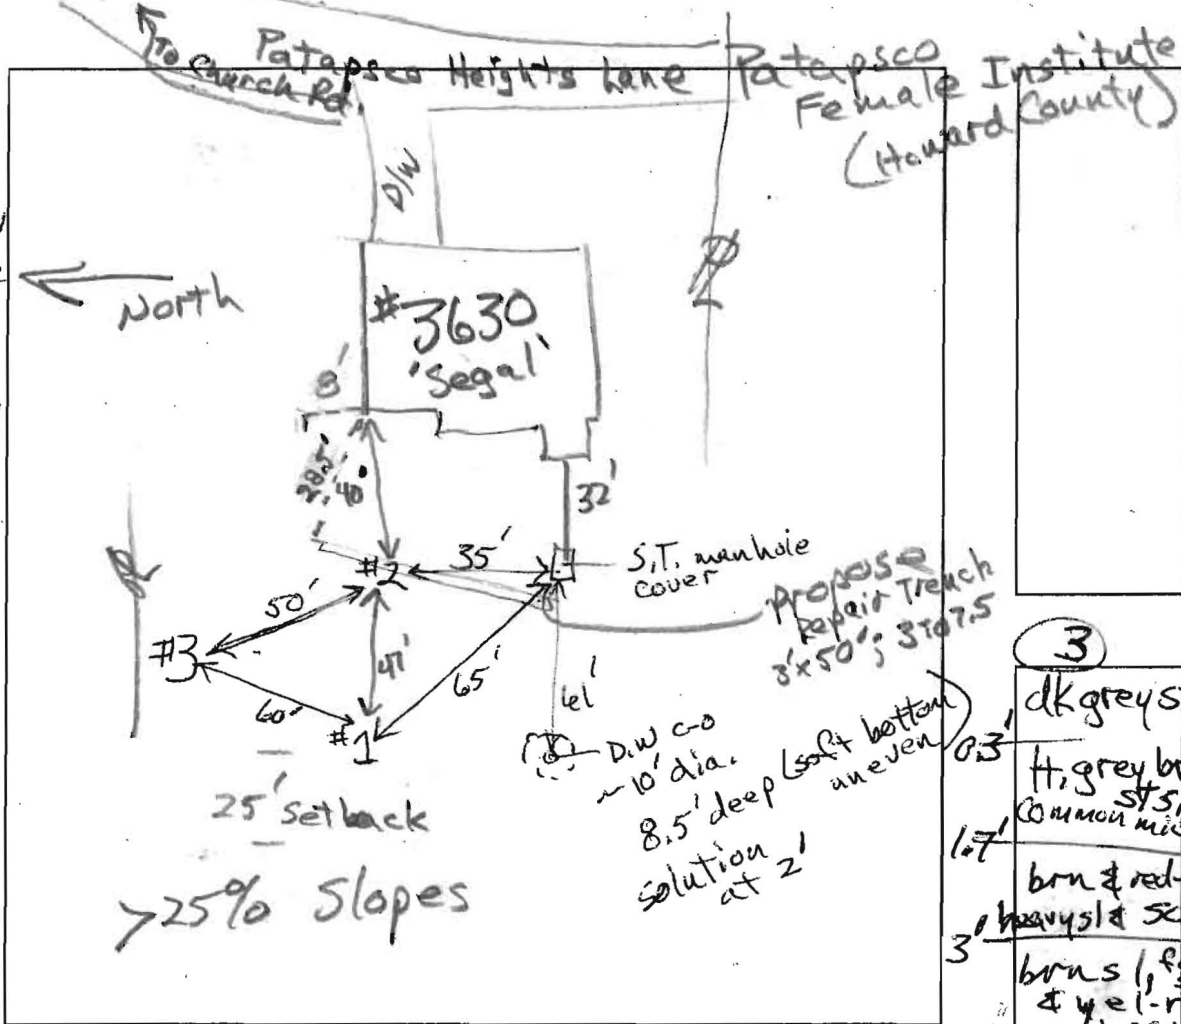 To Church Rd.
Patapsco Heights Lane
Patapsco
Female Institute
(Howard County)
D/W
North
#3630
'Segal'
8'
28.5'
40'
32'
#2
35'
S.T. manhole
cover
propose
Repair Trench
3'x50'; 3 to 7.5
50'
#3
47'
65'
61'
60'
#1
D.W c-o
~10' dia.
8.5' deep (soft bottom
uneven)
solution
at 2'
25' setback
>25% Slopes
3
dk grey s
0.3'
lt, grey br
common mi
1.7'
brn & red-
heavy sl & sc
3'
brn s l, f
& yel-r